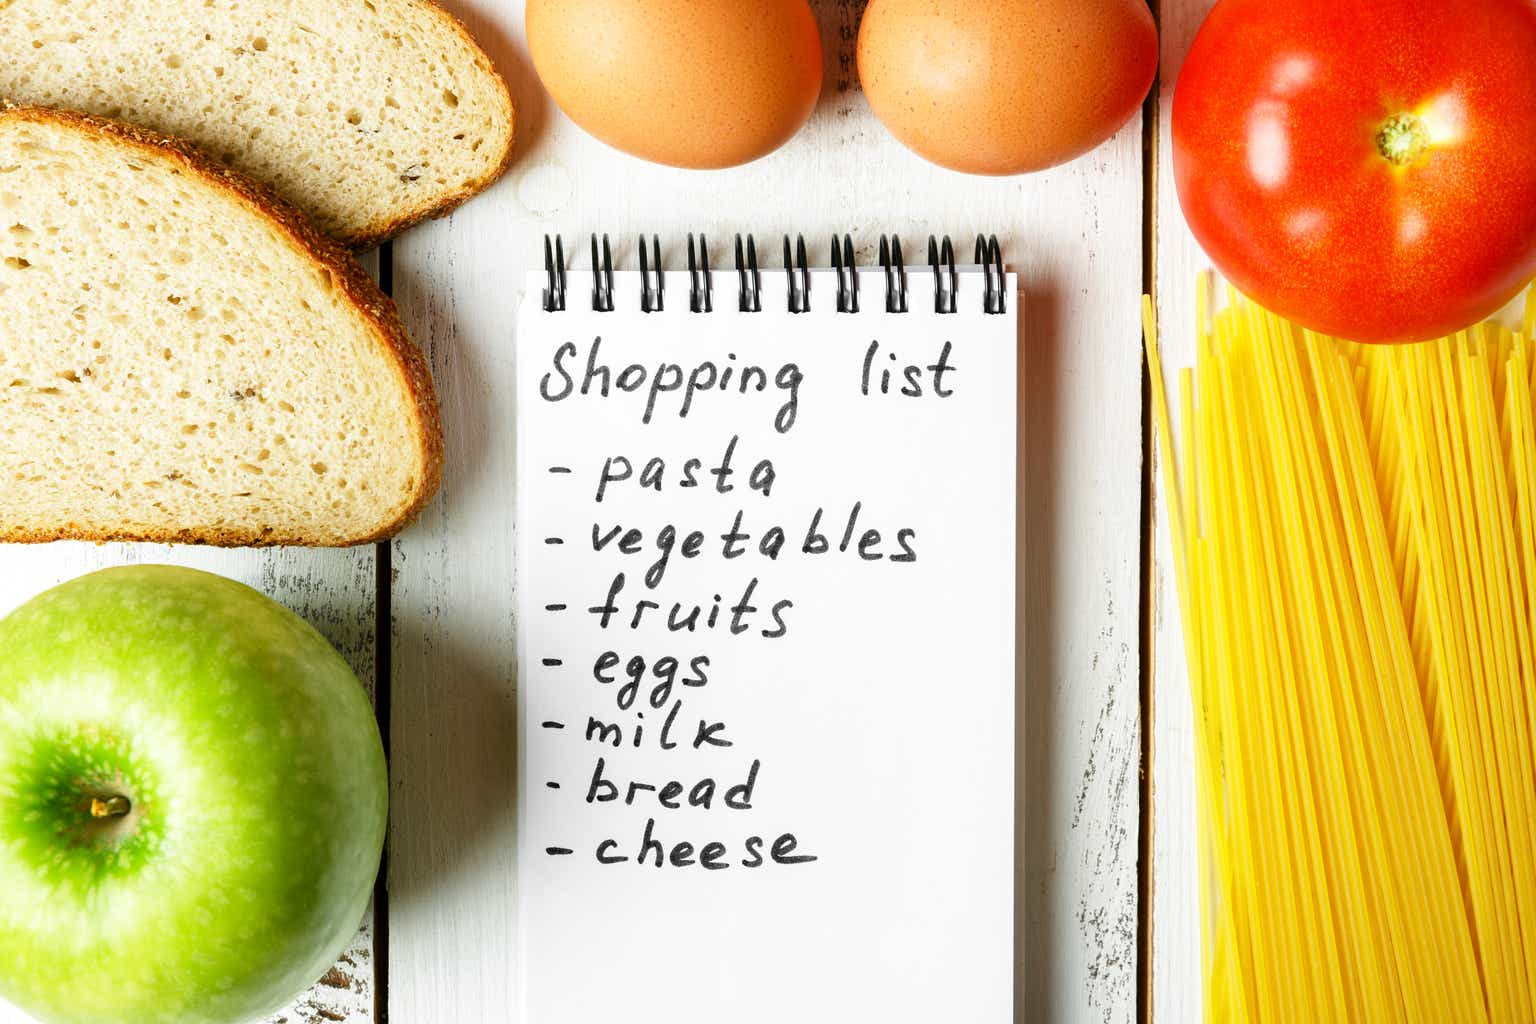 Shopping list
- pasta
- vegetables
- fruits
- eggs
- milk
- bread
- cheese